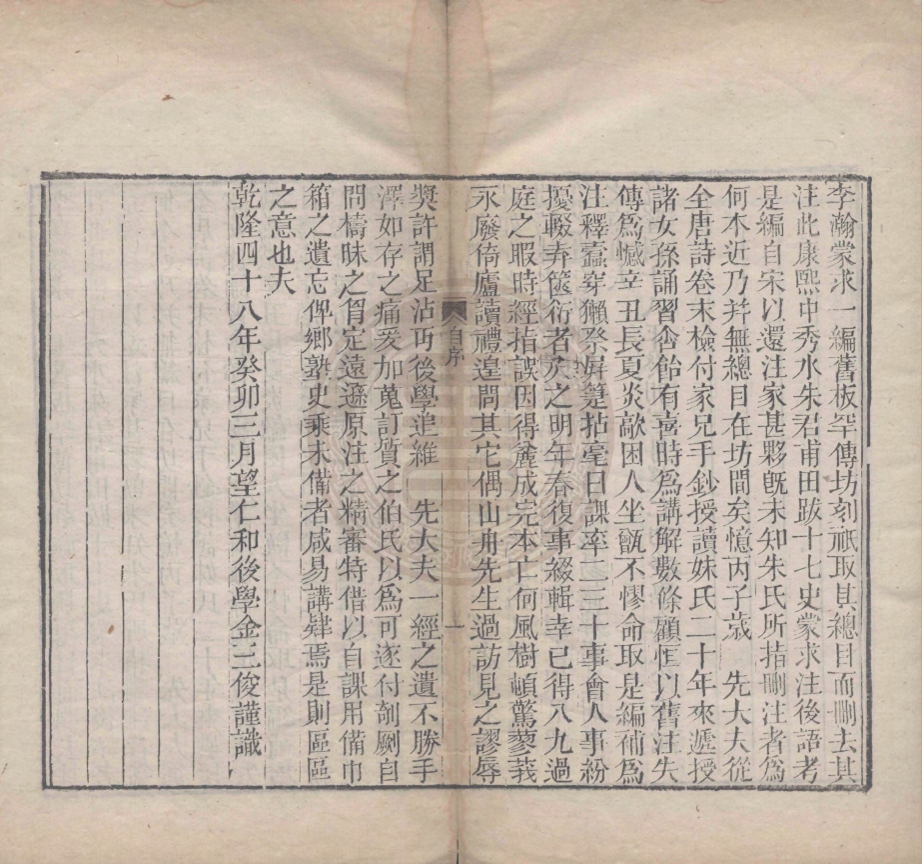 李瀚蒙求一編舊板罕傳坊刻祇取其總目而刪去其
注此康熙中秀水朱君甫田跋十七史蒙求注後語考
是編自宋以還注家甚夥旣未知朱氏所指刪注者爲
何本近乃幷無總目在坊間矣憶丙子歲　先大夫從
全唐詩卷末檢付家兄手鈔授讀妹氏二十年來遞授
諸女孫誦習含飴有喜時爲講解數條顧恆以舊注失
傳爲憾辛丑長夏炎歊困人坐甑不憀命取是編補爲
注釋蠹穿獺祭屛箑拈毫日課率二三十事會人事紛
擾輟弃篋衍者久之明年春復事綴輯幸已得八九過
庭之暇時經指誤因得麄成完本亡何風樹頓驚蓼莪
永廢倚廬讀禮遑問其它偶山舟先生過訪見之謬辱
自序
一
奬許謂足沾丐後學追維　先大夫一經之遺不勝手
澤如存之痛爰加蒐訂質之伯氏以爲可遂付剞劂自
問檮昧之胷定遠遜原注之精審特借以自課用備巾
箱之遺忘俾鄉塾史乘未備者咸易講肄焉是則區區
之意也夫
乾隆四十八年癸卯三月望仁和後學金三俊謹識